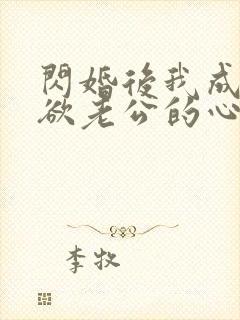 閃婚後我成
欲老公的心
李牧